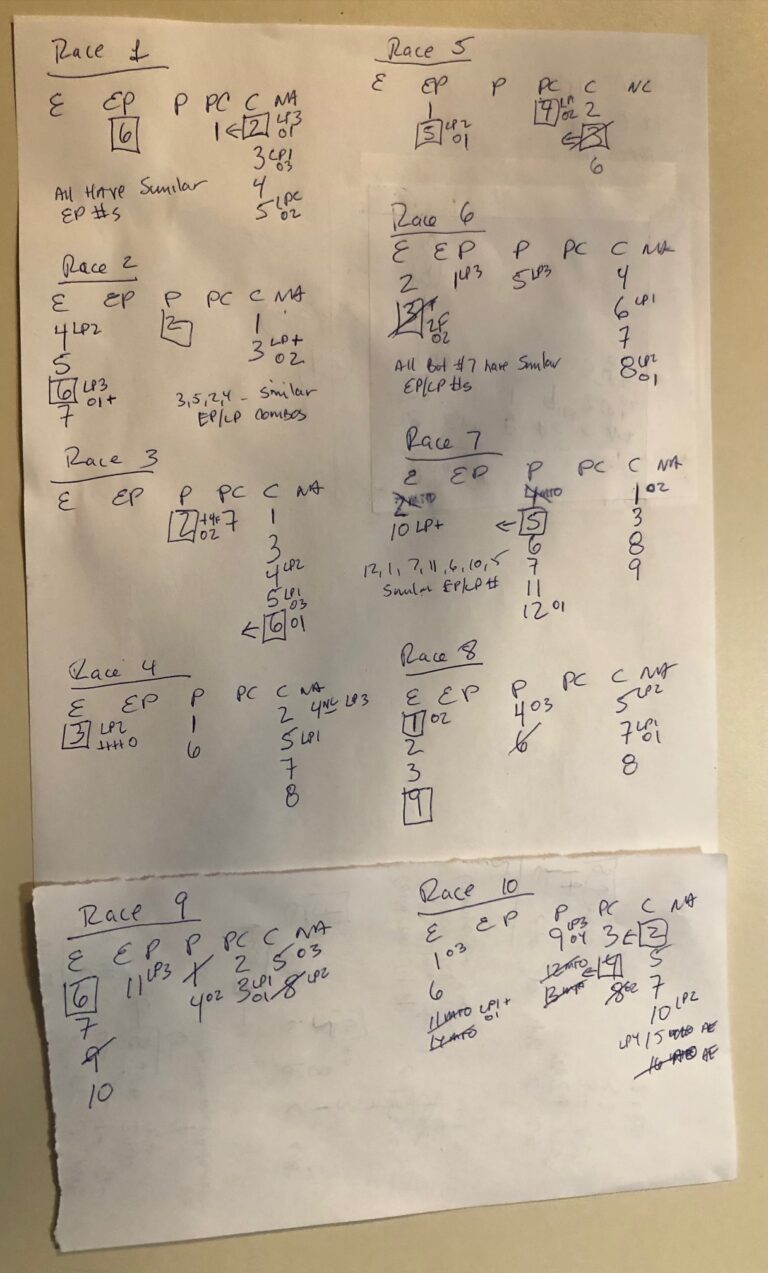 Race 1
E EP P PC C NA
6 1 ← 2 LP3 O1
3 LP1 O3
All HAVE Similar 4
EP #s 5 LPC O2
Race 2
E EP P PC C NA
4 LP2 2 1
5 3 LP+ O2
6 LP3 O1+ 3,5,2,4 - Similar
7 EP/LP COMBOS
Race 3
E EP P PC C NA
2 O2 7 1
3
4 LP2
5 LP1 O3
← 6 O1
Race 4
E EP P PC C NA
3 LP2 1 2 4 NC LP3
6 5 LP1
7
8
Race 5
E EP P PC C NC
1 4 O2 2
5 LP2 O1 ← 3
6
Race 6
E EP P PC C NA
2 1 LP3 5 LP3 4
3 O2 6 LP1
7
All But #7 have Similar 8 LP2 O1
EP/LP #s
Race 7
E EP P PC C NA
2 MTO 4 MTO 1 O2
10 LP+ ← 5 3
6 8
12, 1, 7, 11, 6, 10, 5 7 9
Similar EP/LP # 11
12 O1
Race 8
E EP P PC C NA
1 O2 4 O3 5 LP2
2 6 7 LP1 O1
3 8
9
Race 9
E EP P PC C NA
6 11 LP3 1 2 5 O3
7 4 O2 3 LP1 O1 8 LP2
9
10
Race 10
E EP P PC C NA
1 O3 9 LP3 O4 3 ← 2
6 12 MTO ← 4 5
11 MTO LP1+ O1 13 MTO 8 O2 7
14 MTO 10 LP2
LP4 15 AE
16 AE